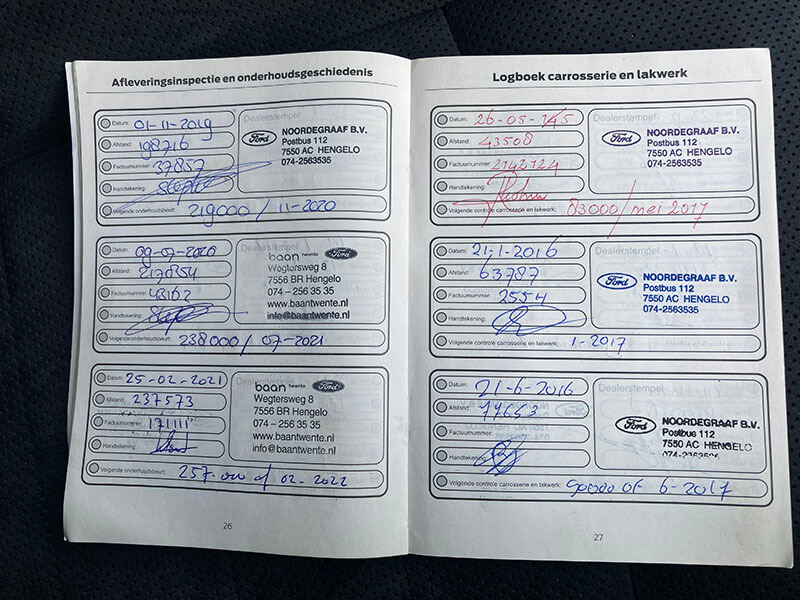 Afleveringsinspectie en onderhoudsgeschiedenis
Datum: 01-11-2019
Afstand: 198716
Factuurnummer: 37857
Handtekening:
Volgende onderhoudsbeurt: 219000 / 11-2020
Dealerstempel
Ford NOORDEGRAAF B.V.
Postbus 112
7550 AC HENGELO
074-2563535
Datum: 09-07-2020
Afstand: 217854
Factuurnummer: 43162
Handtekening:
Volgende onderhoudsbeurt: 238000 / 07-2021
Dealerstempel
baan twente Ford
Wegtersweg 8
7556 BR Hengelo
074 – 256 35 35
www.baantwente.nl
info@baantwente.nl
Datum: 25-02-2021
Afstand: 237573
Factuurnummer: 171111
Handtekening:
Volgende onderhoudsbeurt: 257.000 of 02-2022
baan twente Ford
Wegtersweg 8
7556 BR Hengelo
074 – 256 35 35
www.baantwente.nl
info@baantwente.nl
26
Logboek carrosserie en lakwerk
Datum: 26-05-15
Afstand: 43508
Factuurnummer: 2142724
Handtekening:
Volgende controle carrosserie en lakwerk: 83000/mei 2017
Dealerstempel
Ford NOORDEGRAAF B.V.
Postbus 112
7550 AC HENGELO
074-2563535
Datum: 21-1-2016
Afstand: 63787
Factuurnummer: 2554
Handtekening:
Volgende controle carrosserie en lakwerk: 1-2017
Ford NOORDEGRAAF B.V.
Postbus 112
7550 AC HENGELO
074-2563535
Datum: 21-6-2016
Afstand: 79663
Factuurnummer:
Handtekening:
Volgende controle carrosserie en lakwerk: 99000 of 6-2017
Dealerstempel
Ford NOORDEGRAAF B.V.
Postbus 112
7550 AC HENGELO
074-2563535
27